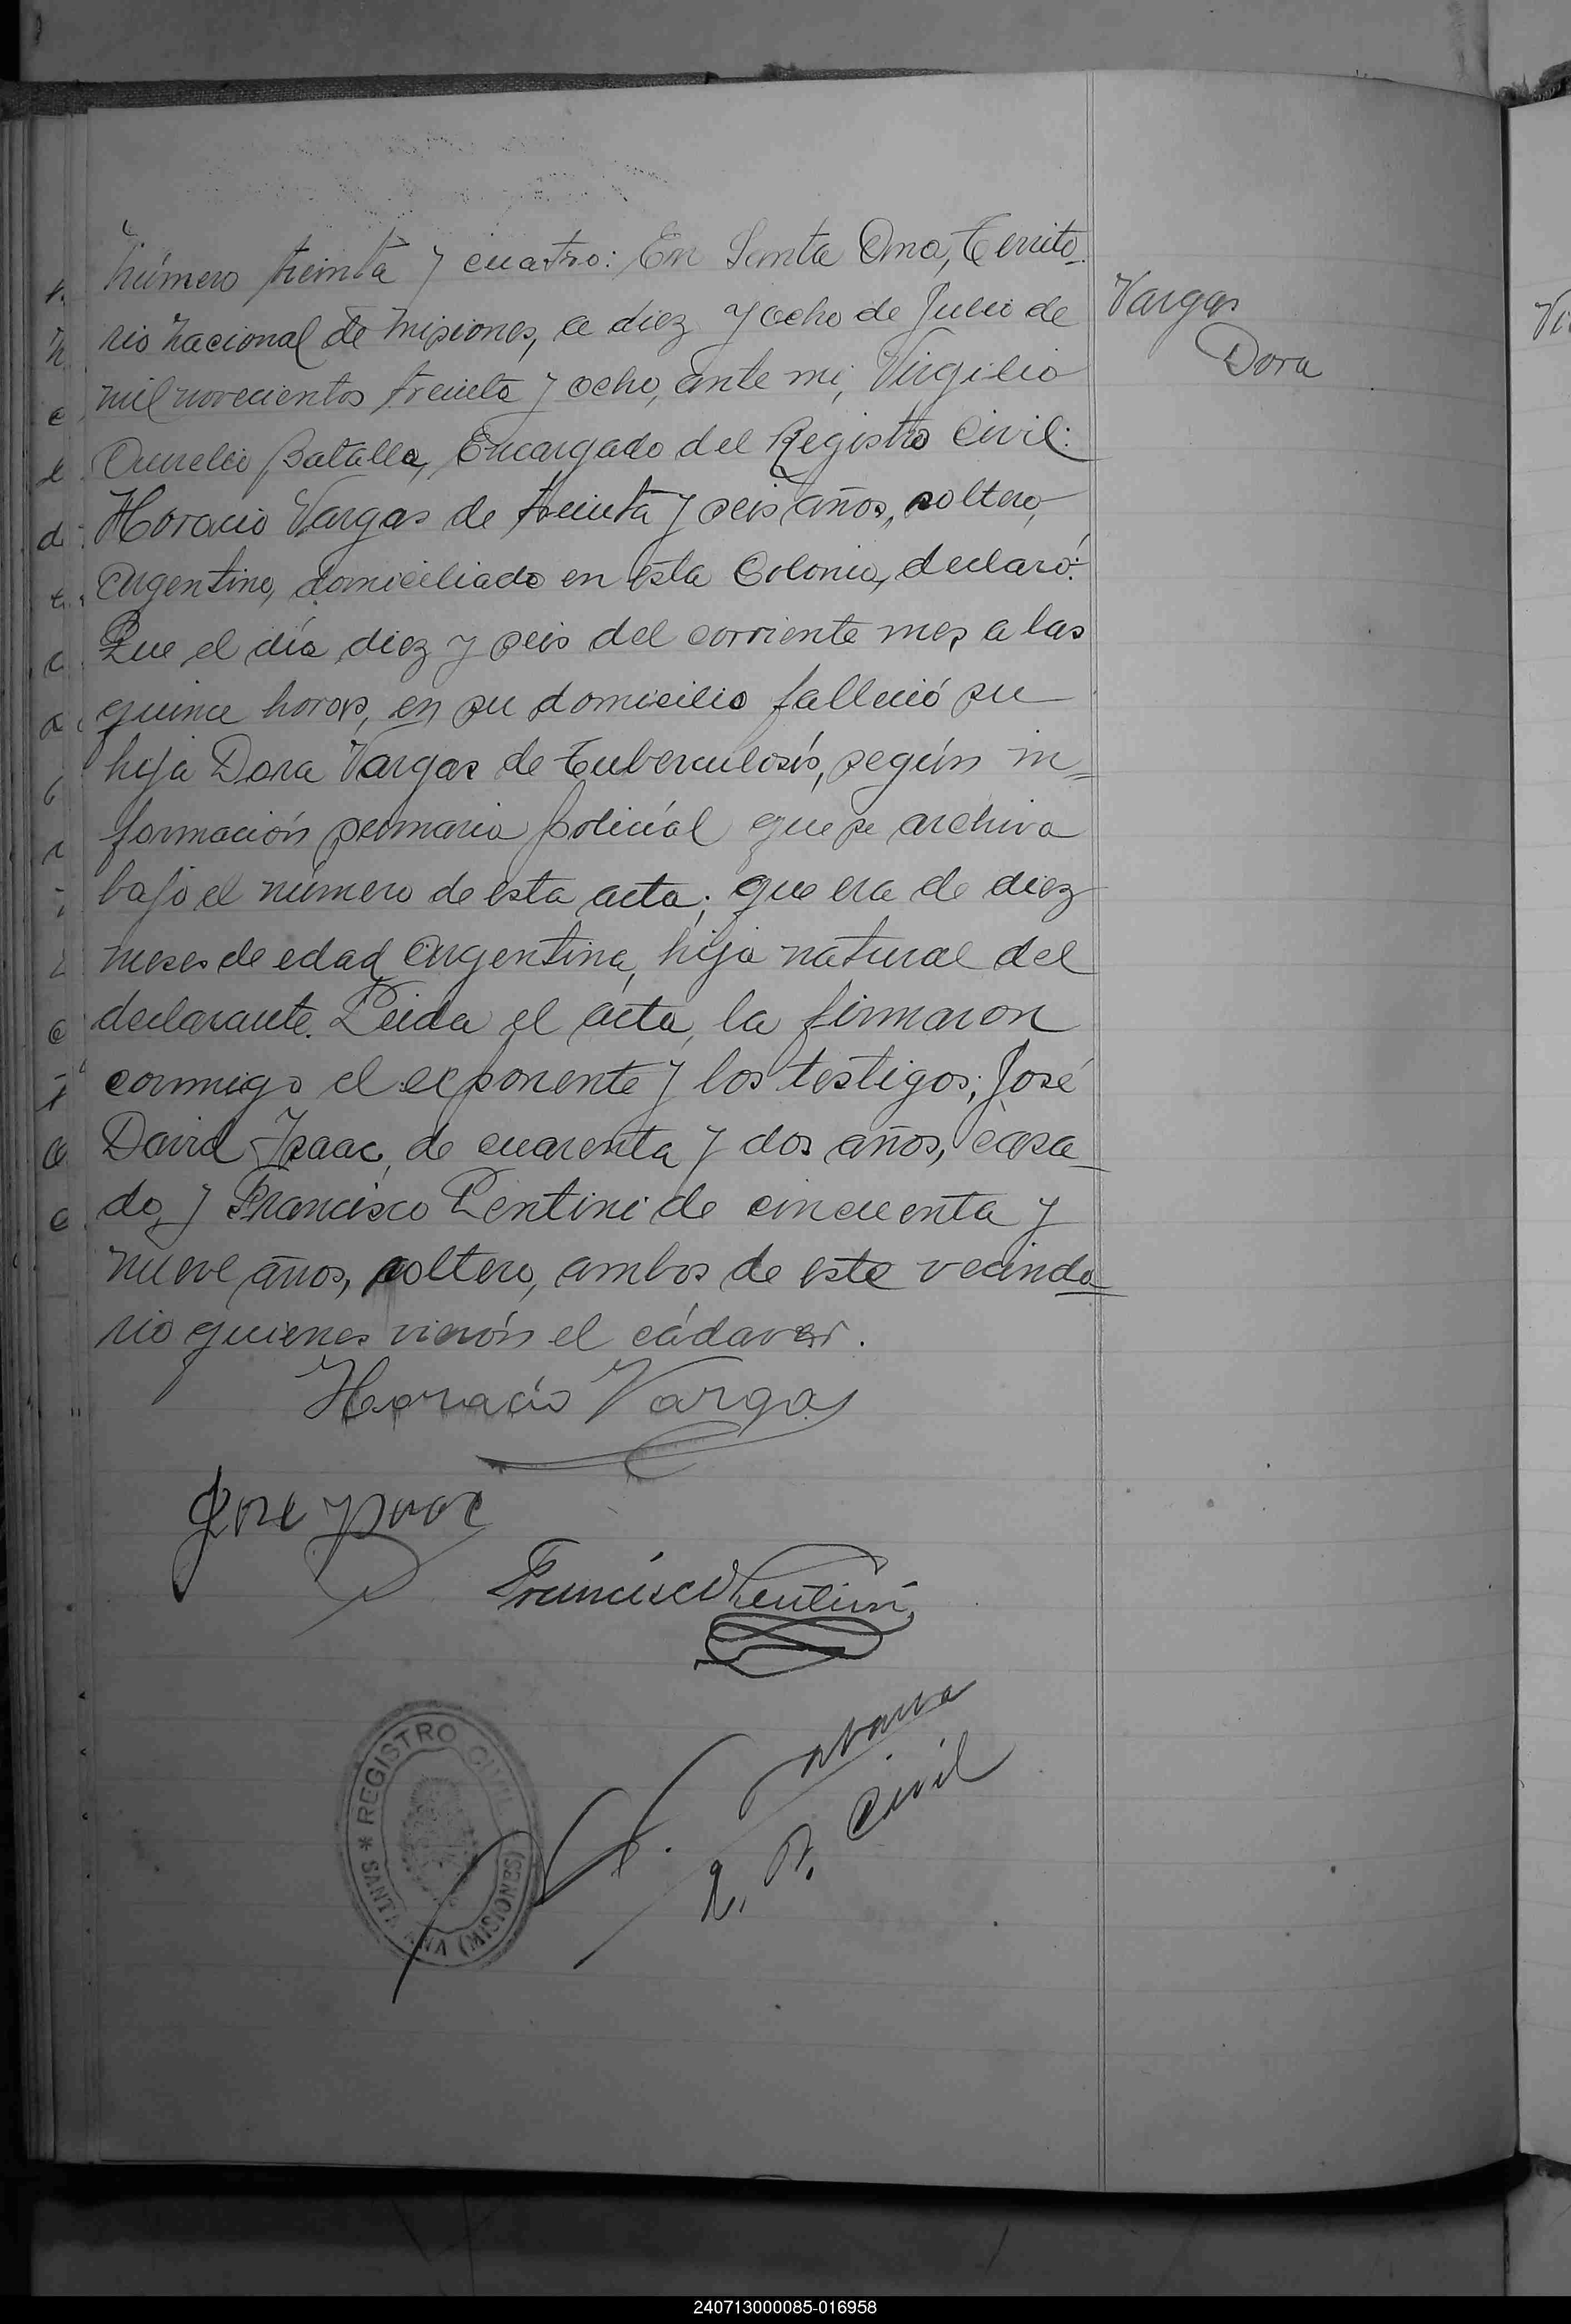 Número treinta y cuatro: En Santa Ana, Territo-
rio Nacional de Misiones, a diez y ocho de Julio de
mil novecientos treinta y ocho, ante mi, Virgilio
Aurelio Batalla, Encargado del Registro Civil:
Horacio Vargas de treinta y seis años, soltero,
Argentino, domiciliado en esta Colonia, declaró:
Que el día diez y seis del corriente mes a las
quince horas, en su domicilio falleció su
hija Dora Vargas de Tuberculosis, según in=
formación sumaria policiál que se archiva
bajo el número de esta acta; que era de diez
meses de edad Argentina, hija natural del
declarante. Leida el acta, la firmaron
conmigo el exponente y los testigos; José
David Isaac, de cuarenta y dos años, casa-
do, y Francisco Lentini de cincuenta y
nueve años, soltero, ambos de este vecinda
rio quienes vierón el cádaver.
Vargas
Dora
Horacio Vargas
Jose Isaac
Francisco Lentini
R. Civil
* REGISTRO CIVIL *
SANTA ANA (MISIONES)
240713000085-016958